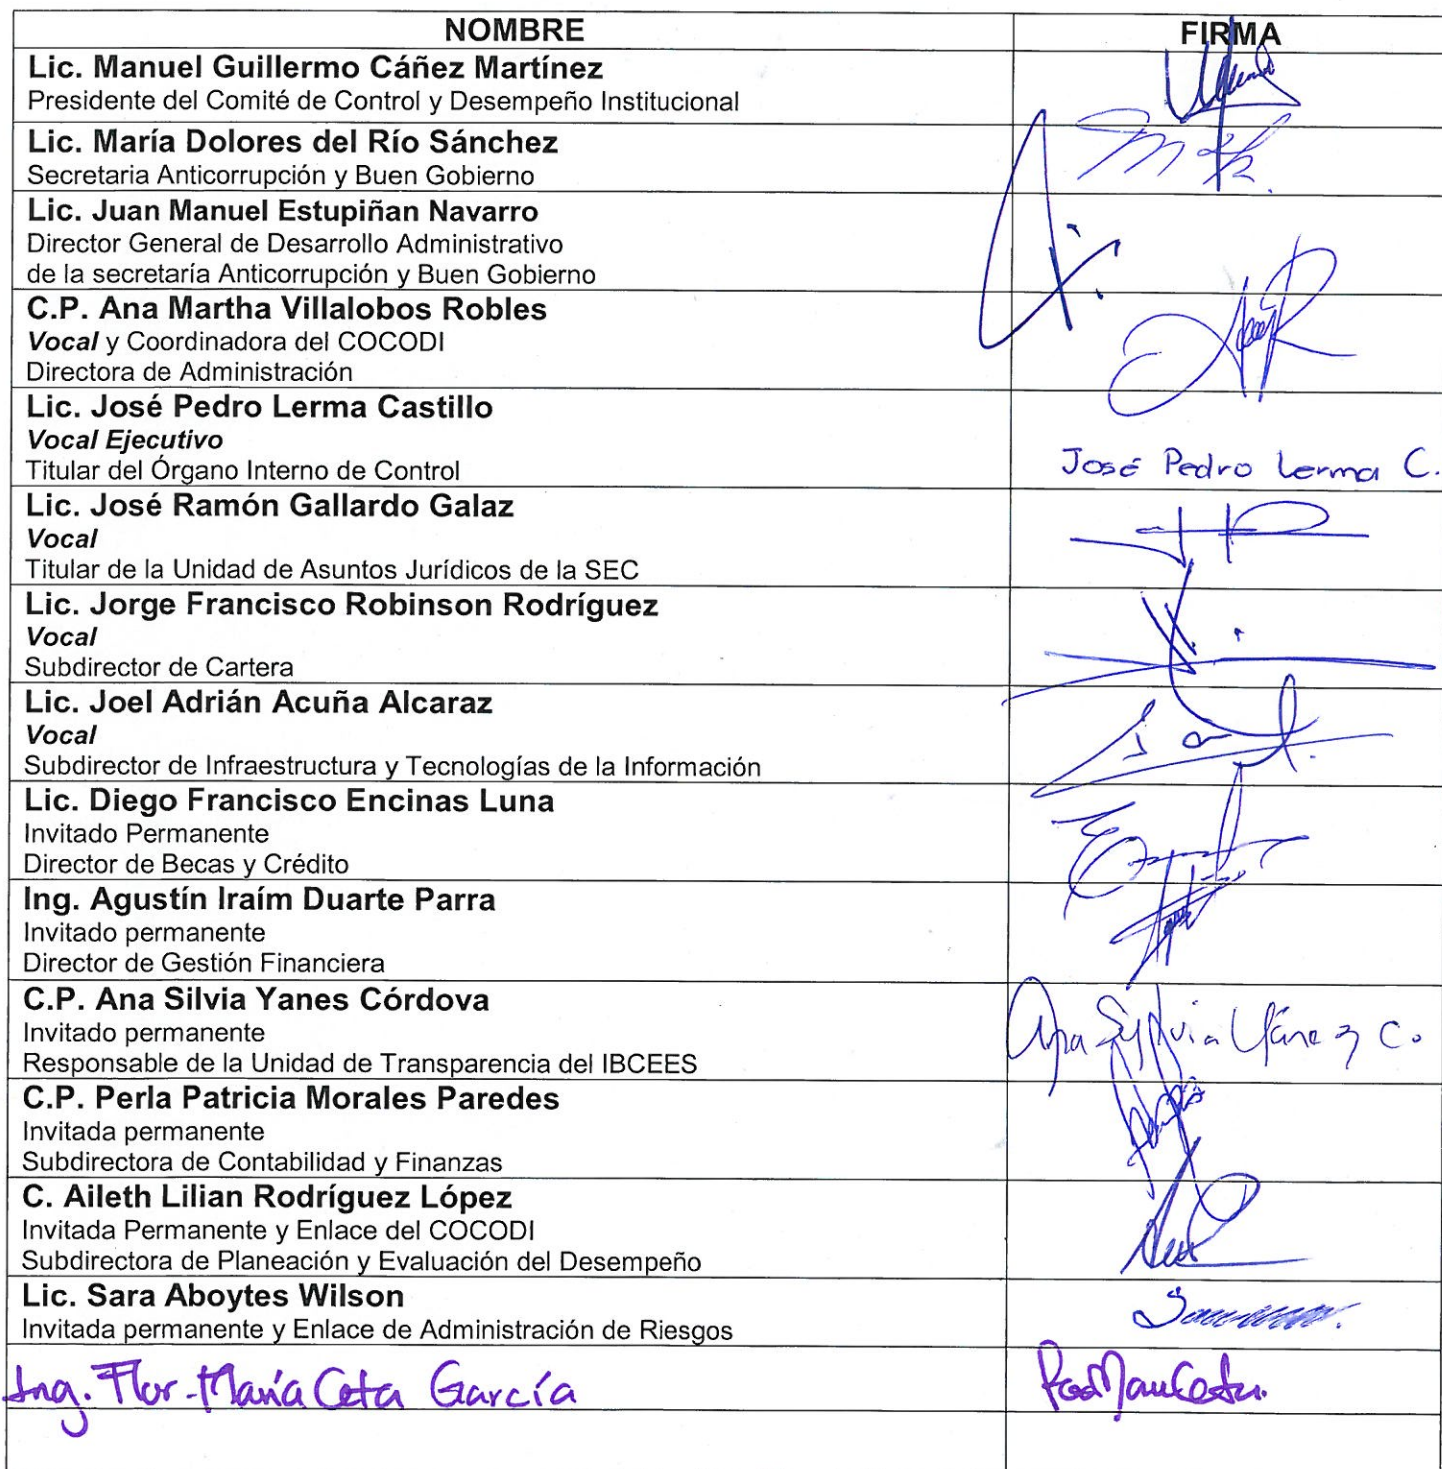 NOMBRE FIRMA
Lic. Manuel Guillermo Cáñez Martínez
Presidente del Comité de Control y Desempeño Institucional
Lic. María Dolores del Río Sánchez
Secretaria Anticorrupción y Buen Gobierno
Lic. Juan Manuel Estupiñan Navarro
Director General de Desarrollo Administrativo
de la secretaría Anticorrupción y Buen Gobierno
C.P. Ana Martha Villalobos Robles
Vocal y Coordinadora del COCODI
Directora de Administración
Lic. José Pedro Lerma Castillo
Vocal Ejecutivo
Titular del Órgano Interno de Control
José Pedro Lerma C.
Lic. José Ramón Gallardo Galaz
Vocal
Titular de la Unidad de Asuntos Jurídicos de la SEC
Lic. Jorge Francisco Robinson Rodríguez
Vocal
Subdirector de Cartera
Lic. Joel Adrián Acuña Alcaraz
Vocal
Subdirector de Infraestructura y Tecnologías de la Información
Lic. Diego Francisco Encinas Luna
Invitado Permanente
Director de Becas y Crédito
Ing. Agustín Iraím Duarte Parra
Invitado permanente
Director de Gestión Financiera
C.P. Ana Silvia Yanes Córdova
Invitado permanente
Responsable de la Unidad de Transparencia del IBCEES
Ana Sylvia Yánez C.
C.P. Perla Patricia Morales Paredes
Invitada permanente
Subdirectora de Contabilidad y Finanzas
C. Aileth Lilian Rodríguez López
Invitada Permanente y Enlace del COCODI
Subdirectora de Planeación y Evaluación del Desempeño
Lic. Sara Aboytes Wilson
Invitada permanente y Enlace de Administración de Riesgos
Ing. Flor María Ceta García